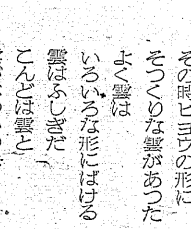 その時ヒヨウの形に
そつくりな雲があつた
よく雲は
いろいろな形にばける
雲はふしぎだ
こんどは雲と